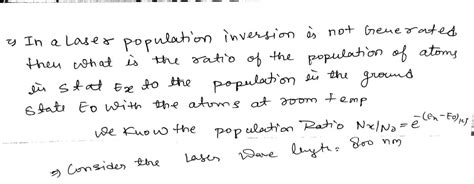 ⇒ In a Laser population inversion is not Generated
then what is the ratio of the population of atoms
in stat Ex to the population in the ground
state E0 with the atoms at room temp
We know the population Ratio Nx/N0 = e^-(Ex-E0)/KT
⇒ Consider the Laser Wave length = 800 nm